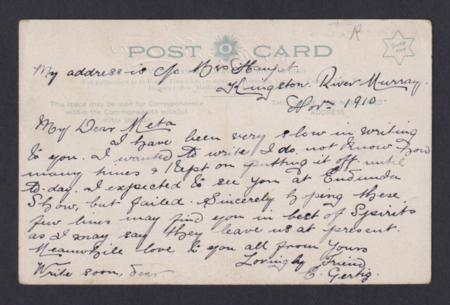 POST CARD
My address is c/o Mrs Haupt
Kingston River Murray.
Nov. 1910
This space may be used for Correspondence
within the Commonwealth
ADDRESS
My Dear Meta
I have been very slow in writing
to you. I wanted to write I do not know how
many times & kept on putting it off until
to-day. I expected to see you at Eudunda
Show, but failed. Sincerely hoping these
few lines may find you in best of Spirits
as I may say they leave us at present.
Meanwhile love to you all from Yours
Loving by Friend
Write soon, dear
E. Gertig.